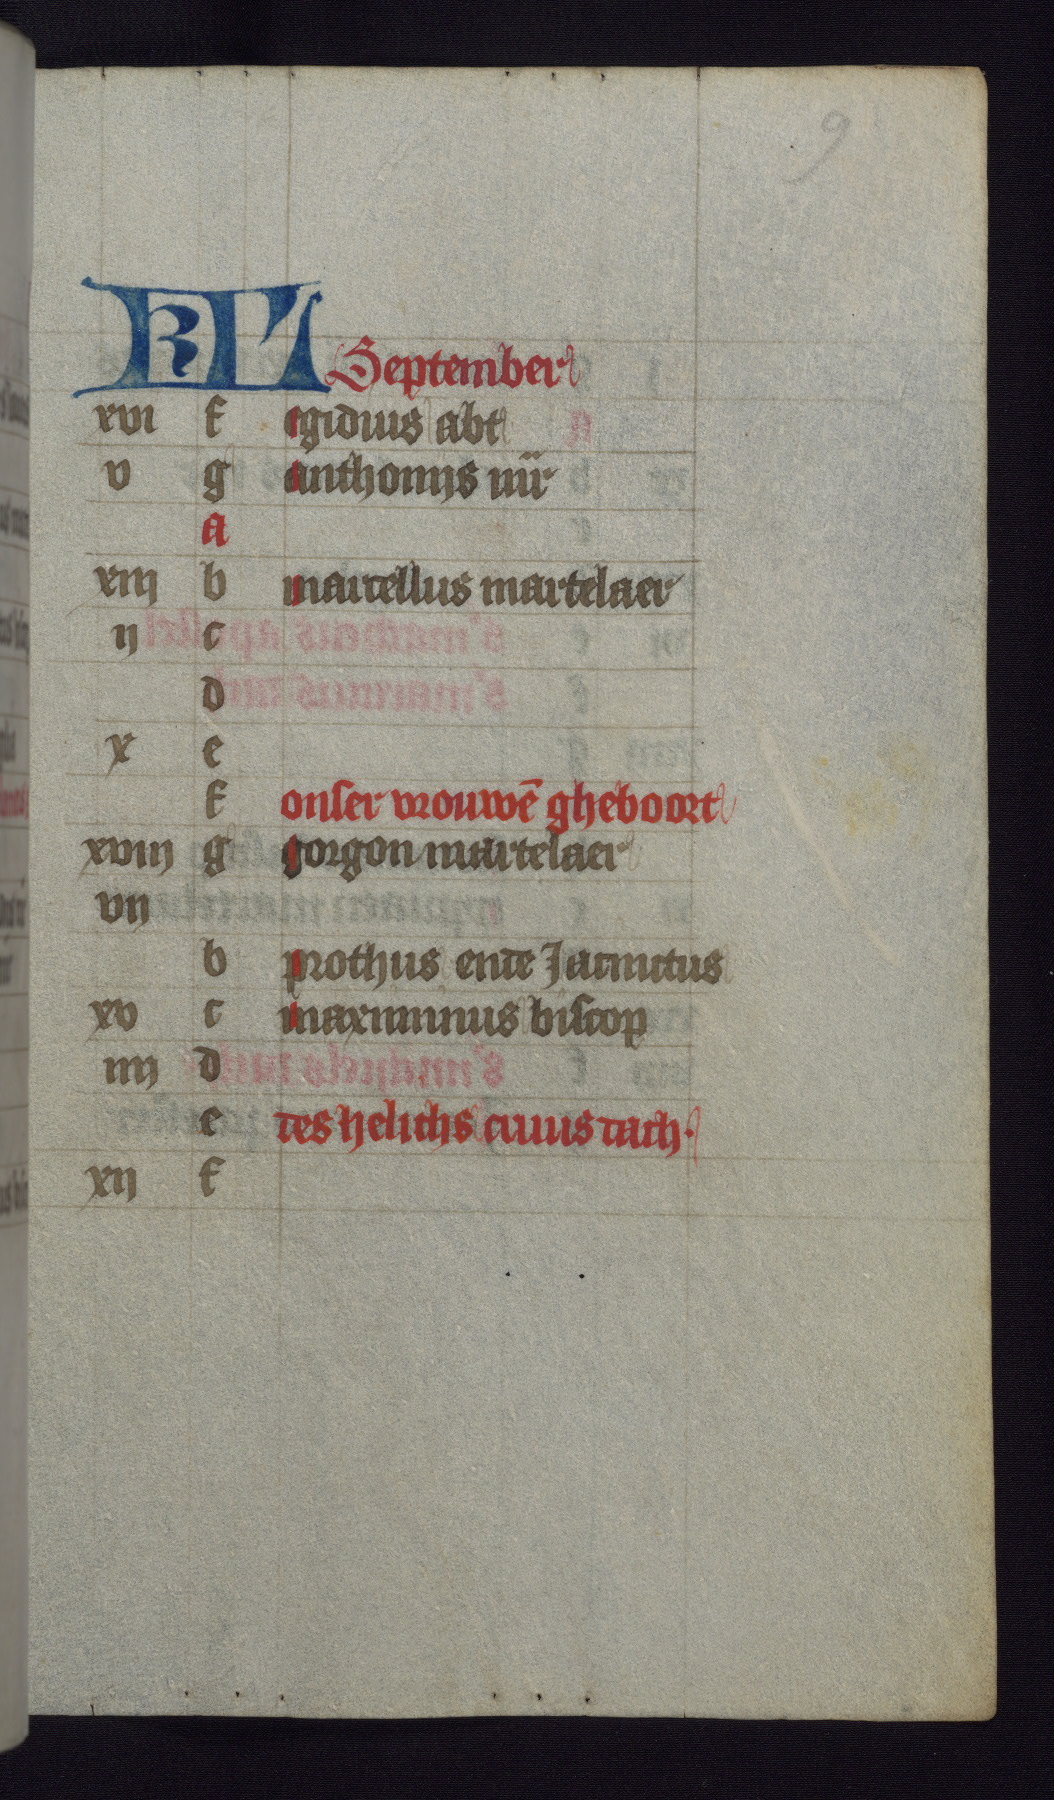 9
KL September
xvi f egidius abt
v g anthonijs mr̄
A
xiij b marcellus martelaer
ij c
d
x e
f onser vrouwē gheboort
xviij g gorgon martelaer
vij
b prothus ende Jacinctus
xv c maximinus biscop
iiij d
e des helichs cruus dach
xij f